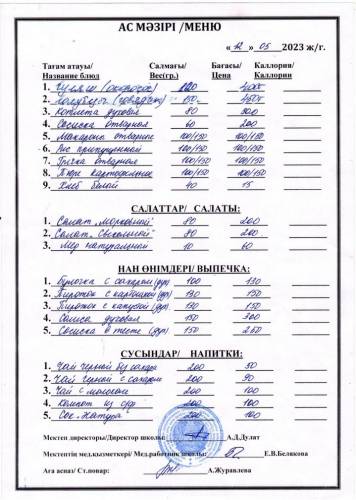 АС МӘЗІРІ /МЕНЮ
« 12 » 05 2023 ж/г.
Тағам атауы/ Салмағы/ Бағасы/ Каллории/
Название блюд Вес(гр.) Цена Каллории
1. Гуляш 120 400
2. 150 450
3. Котлета духовая 80 300
4. Сосиска отварная 60 200
5. Макароны отварные 100/150 100/150
6. Рис припущенный 100/150 100/150
7. Гречка отварная 100/150 100/150
8. Пюре картофельное 100/150 100/150
9. Хлеб белый 40 15
САЛАТТАР/ САЛАТЫ:
1. Салат „Морковный" 80 200
2. Салат „Свекольный" 80 200
3. Мед натуральный 10 60
НАН ӨНІМДЕРІ/ ВЫПЕЧКА:
1. Булочка с сахаром (дух) 100 130
2. Пирожок с картошкой (дух) 130 150
3. Пирожок с капустой (дух) 130 150
4. Самса духовая 150 300
5. Сосиска в тесте (дух) 150 250
СУСЫНДАР/ НАПИТКИ:
1. Чай черный без сахара 200 50
2. Чай черный с сахаром 200 90
3. Чай с молоком 200 100
4. Компот из с/ф 200 100
5. Сок „Натура" 200 100
Мектеп директоры/Директор школы: А.Д.Дулат
Мектептің мед.қызметкері/ Мед.работник школы: Е.В.Белякова
Аға аспаз/ Ст.повар: А.Журавлева